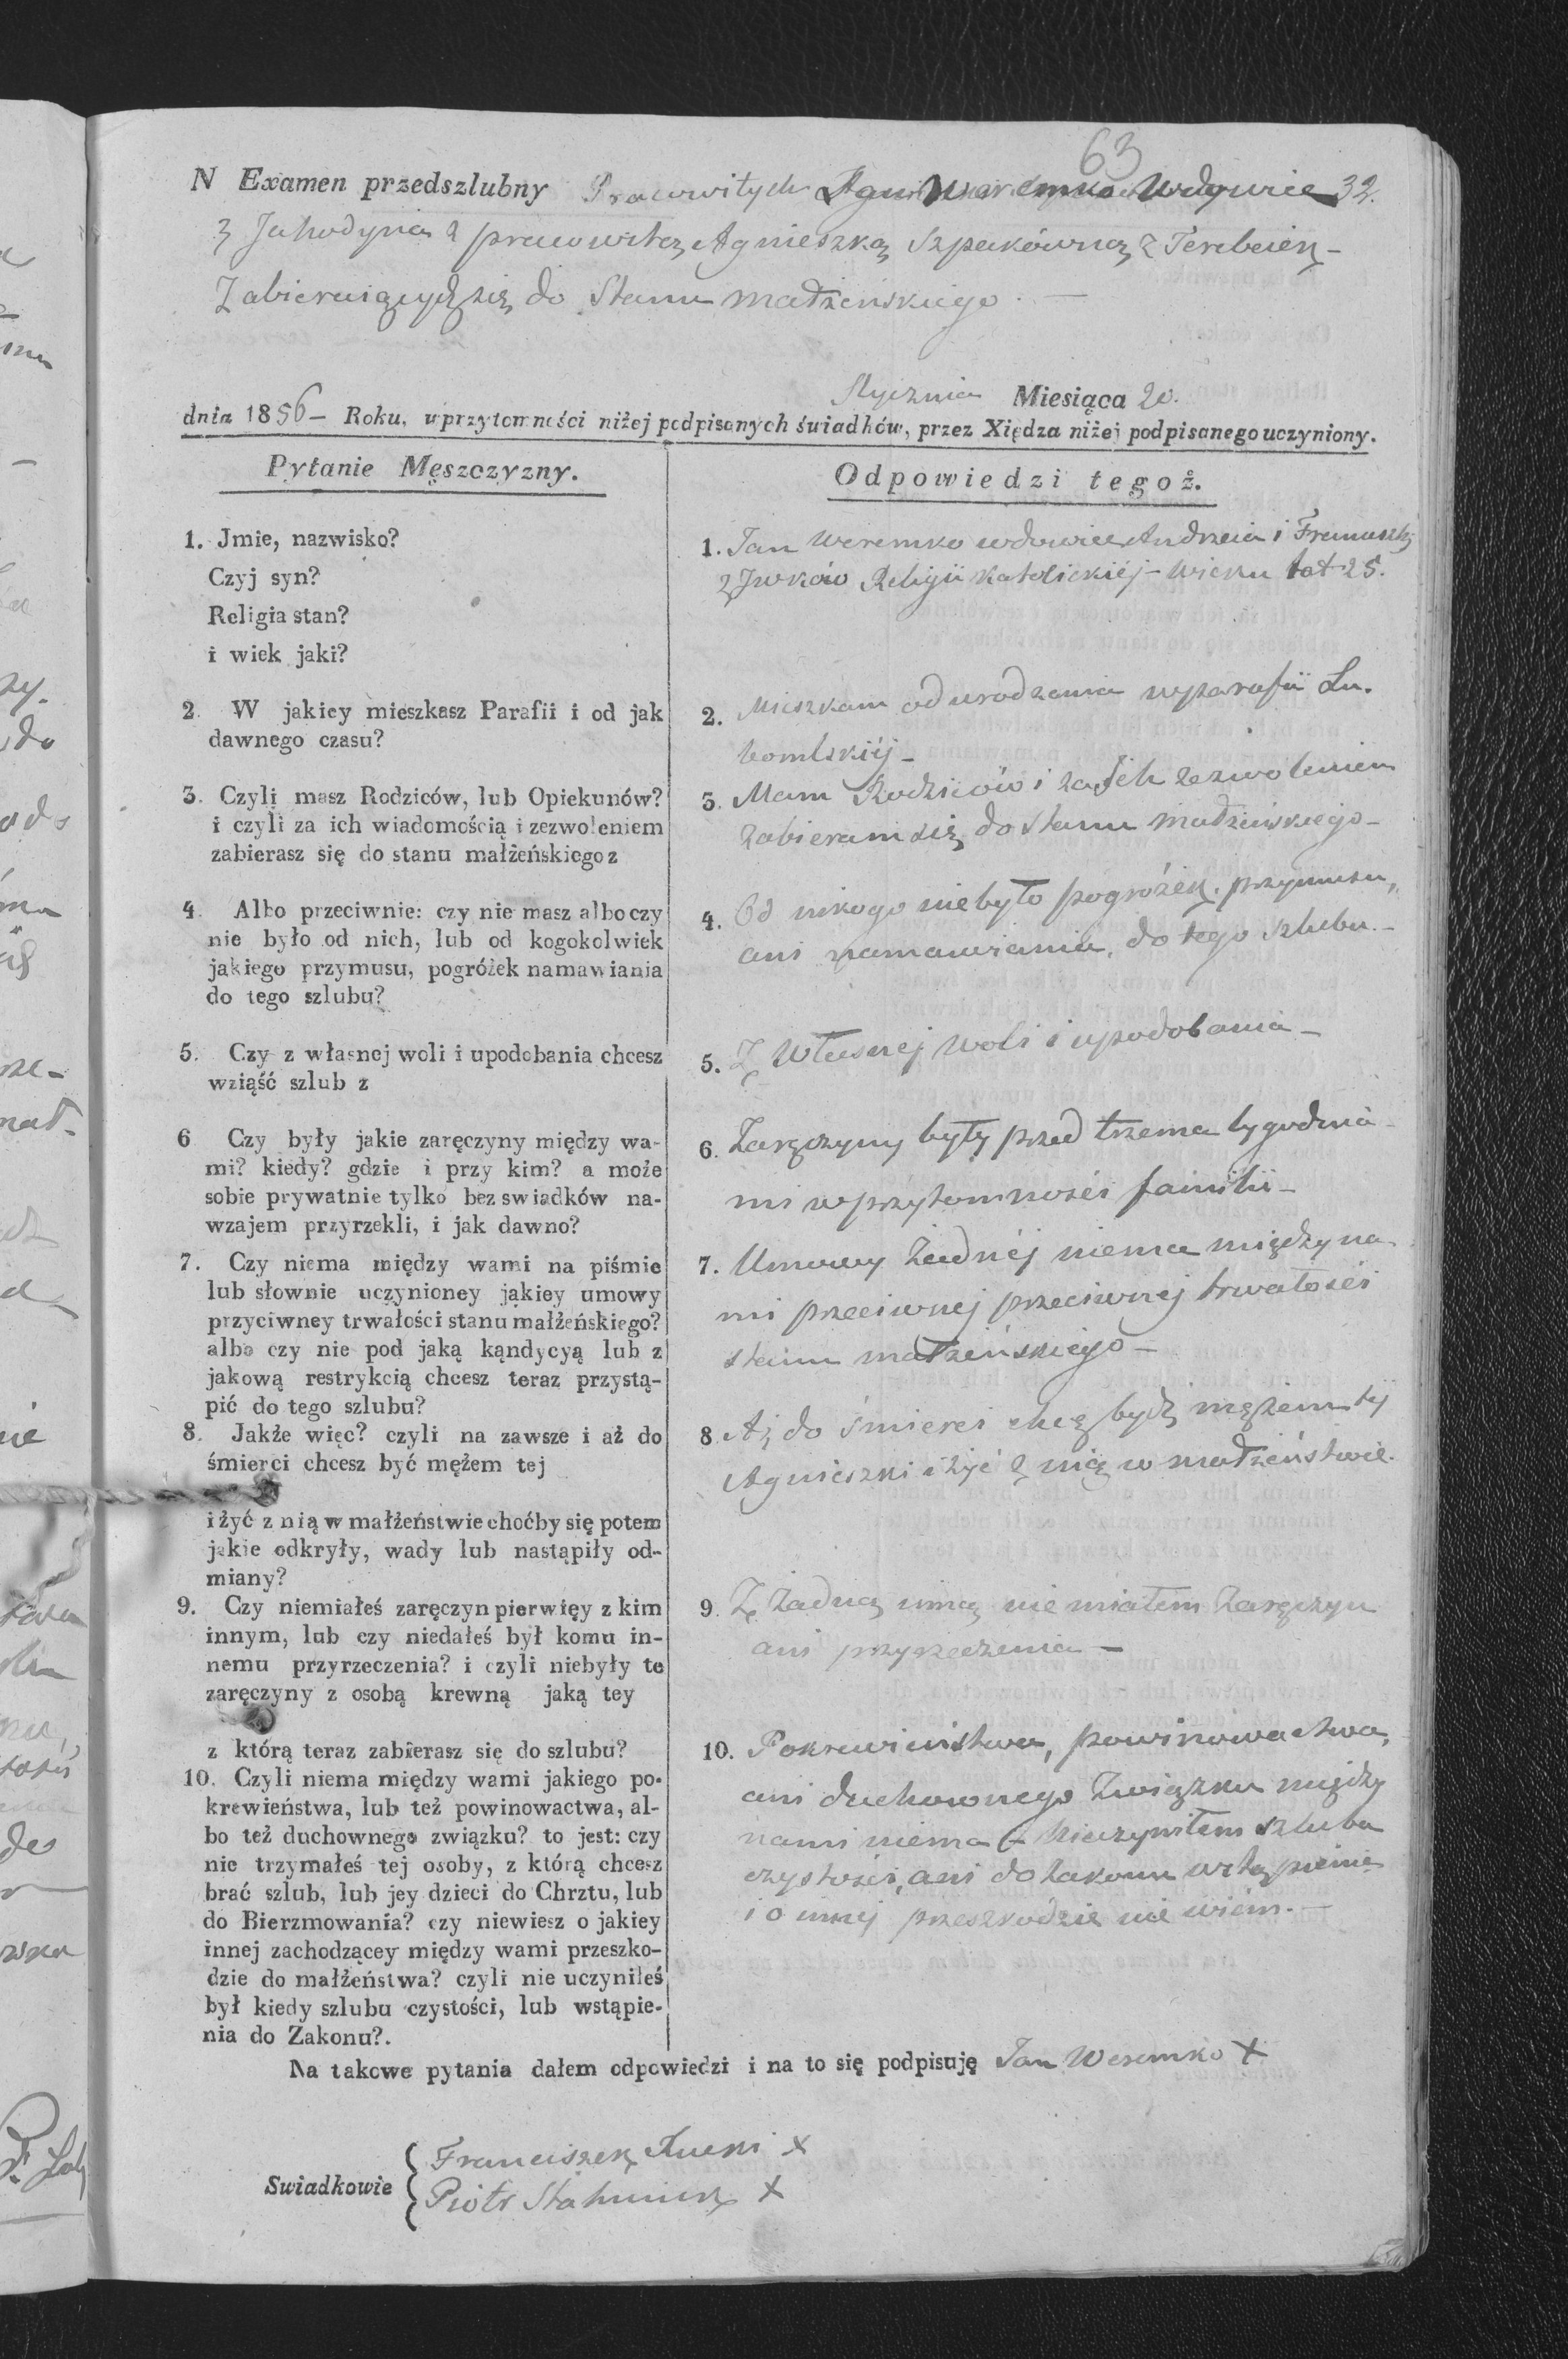 63
N Examen przedszlubny Pracowitych Weremko Wdowiec 32.
z Jahodyna z pracowitą Agnieszką Szpakówną z Terebeiek-
Zabieraiących się do Stanu małżeńskiego. —
Stycznia Miesiąca 20.
dnia 1856 — Roku, w przytomności niżej podpisanych świadków, przez Xiędza niżej podpisanego uczyniony.
Pytanie Męszczyzny.
1. Jmie, nazwisko?
Czyj syn?
Religia stan?
i wiek jaki?
2. W jakiey mieszkasz Parafii i od jak
dawnego czasu?
3. Czyli masz Rodziców, lub Opiekunów?
i czyli za ich wiadomością i zezwoleniem
zabierasz się do stanu małżeńskiego z
4. Albo przeciwnie: czy nie masz albo czy
nie było od nich, lub od kogokolwiek
jakiego przymusu, pogróżek namawiania
do tego szlubu?
5. Czy z własnej woli i upodobania chcesz
wziąść szlub z
6 Czy były jakie zaręczyny między wa-
mi? kiedy? gdzie i przy kim? a może
sobie prywatnie tylko bez swiadków na-
wzajem przyrzekli, i jak dawno?
7. Czy niema między wami na piśmie
lub słownie uczynioney jakiey umowy
przyciwney trwałości stanu małżeńskiego?
albo czy nie pod jaką kąndycyą lub z
jakową restrykcią chcesz teraz przystą-
pić do tego szlubu?
8. Jakże więc? czyli na zawsze i aż do
śmierci chcesz być mężem tej
i żyć z nią w małżeństwie choćby się potem
jakie odkryły, wady lub nastąpiły od-
miany?
9. Czy niemiałeś zaręczyn pierwięy z kim
innym, lub czy niedałeś był komu in-
nemu przyrzeczenia? i czyli niebyły te
zaręczyny z osobą krewną jaką tey
z którą teraz zabierasz się do szlubu?
10. Czyli niema między wami jakiego po-
krewieństwa, lub też powinowactwa, al-
bo też duchownego związku? to jest: czy
nie trzymałeś tej osoby, z którą chcesz
brać szlub, lub jey dzieci do Chrztu, lub
do Bierzmowania? czy niewiesz o jakiey
innej zachodzącey między wami przeszko-
dzie do małżeństwa? czyli nie uczyniłeś
był kiedy szlubu czystości, lub wstąpie-
nia do Zakonu?.
Odpowiedzi tegoż.
1. Jan Weremko wdowiec Andrzeia i Franuszki
z Jwków Religii Katolickiéj - wieku lat 25.
2. Mieszkam od urodzenia w parafii Lu-
bomlskiéj -
3. Mam Rodziców i za Jch zezwoleniem
zabieram się do stanu małżeńskiego -
4. Od nikogo niebyło pogróżek, przymusu,
ani namawiania, do tego szlubu. -
5. Z Własnej woli i upodobania -
6. Zaręczyny były przed trzema tygodnia-
mi w przytomności familii -
7. Umowy żadnéj niema między na-
mi przeciwnej przeciwnej trwałości
stanu małżeńskiego -
8 Aż do śmierci chcę bydź mężem téj
Agnieszki i żyć z nią w małżeństwie.
9. Z żadną inną nie miałem zaręczyn
ani przyrzeczenia —
10. Pokrewieństwa, powinowactwa,
ani duchownego Związku między
nami niema - Nieczyniłem szlubu
czystości, ani do Zakonu wstąpienia
i o innej przeszkodzie nie wiém. —
Na takowe pytania dałem odpowiedzi i na to się podpisuję Jan Weremko X
Swiadkowie
Franciszek X
Piotr X